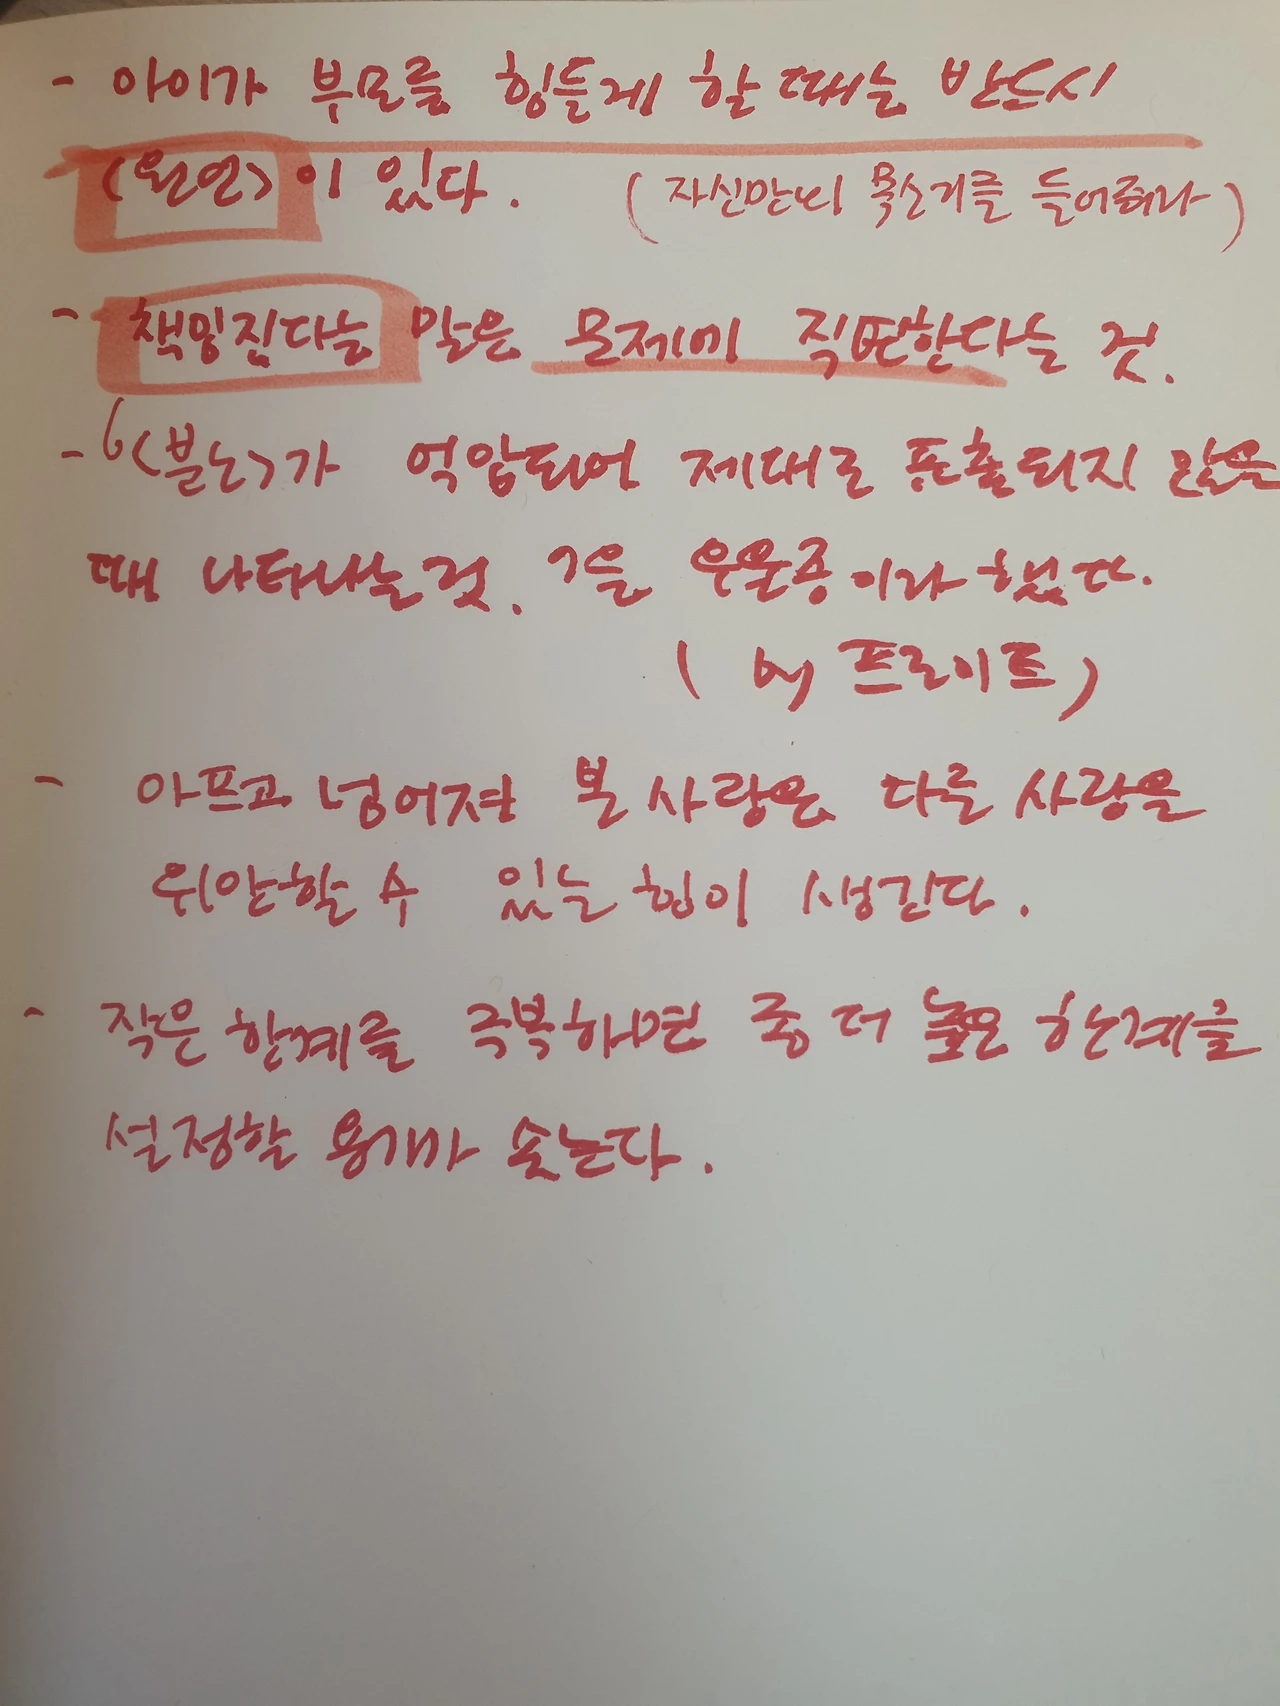 - 아이가 부모를 힘들게 할 때는 반드시
<원인>이 있다. (자신만의 목소리를 들어줘라)
- 책임진다는 말은 문제에 직면한다는 것.
- <분노>가 억압되어 제대로 표출되지 않을
때 나타나는 것. 그를 우울증이라 했다.
(by 프로이트)
- 아프고 넘어져 본 사람은 다른 사람을
위안할 수 있는 힘이 생긴다.
- 작은 한계를 극복하면 좀 더 높은 한계를
설정할 용기가 솟는다.